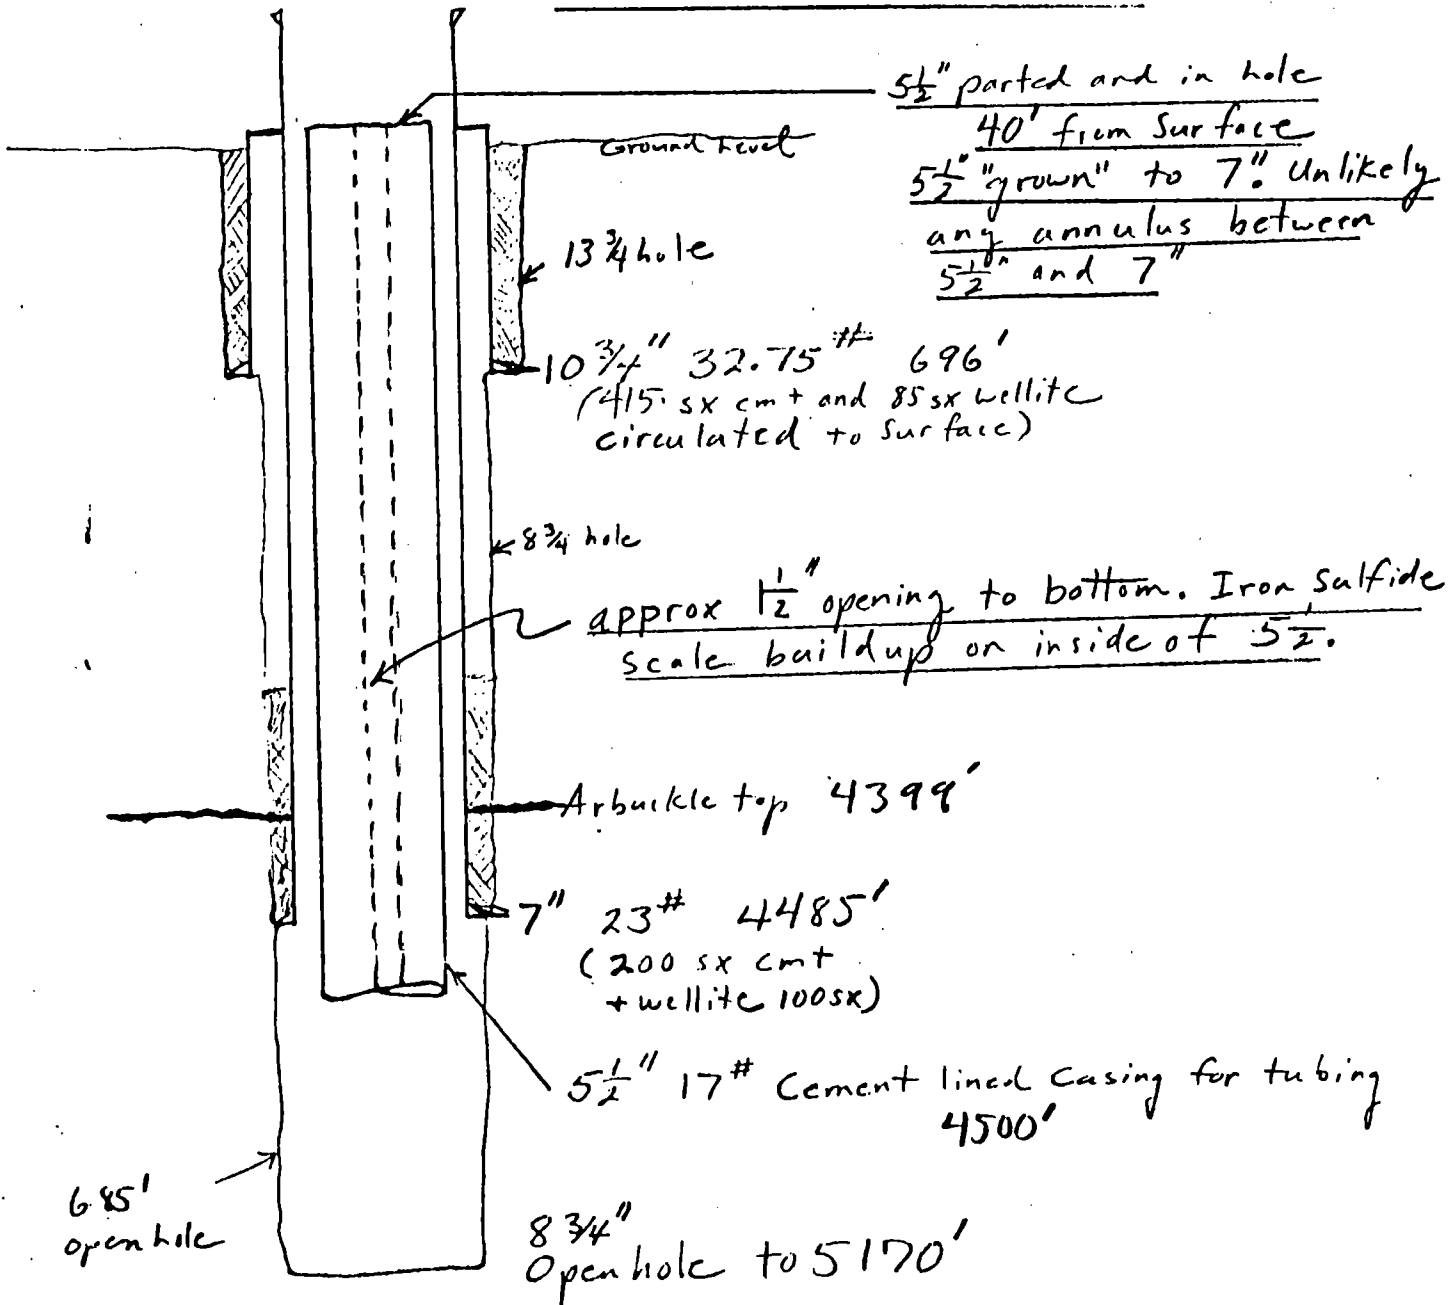 5 1/2" parted and in hole
40' from Surface
5 1/2" "grown" to 7". Unlikely
any annulus between
5 1/2" and 7"
Ground Level
13 3/4 hole
10 3/4" 32.75# 696'
(415 sx cmt and 85 sx wellite
circulated to surface)
8 3/4 hole
approx 1 1/2" opening to bottom. Iron Sulfide
scale buildup on inside of 5 1/2.
Arbuckle top 4399'
7" 23# 4485'
(200 sx cmt
+ wellite 100 sx)
5 1/2" 17# Cement lined Casing for tubing
4500'
685'
open hole
8 3/4"
Open hole to 5170'